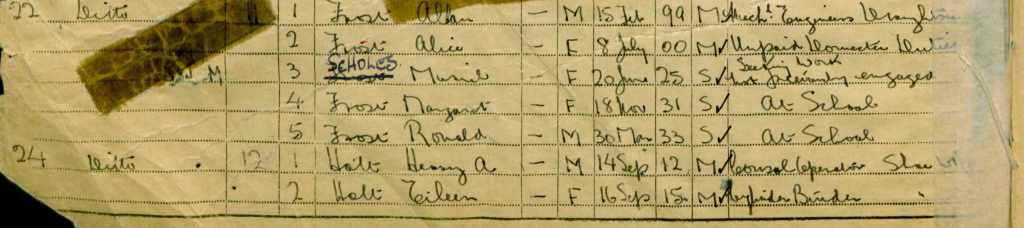 22 Ditto 11 1 Frost Allan – M 15 Feb 99 M Engineers
2 Frost Alice – F 8 July 00 M Unpaid Domestic Duties
M 3 Frost SCHOLES Muriel – F 20 June 25 S Seeking Work engaged
4 Frost Margaret – F 18 Nov 31 S At School
5 Frost Ronald – M 30 Mar 33 S At School
24 Ditto 12 1 Holt Henry A – M 14 Sep 12 M Operator Shoe
2 Holt Eileen – F 16 Sep 15 M Binder